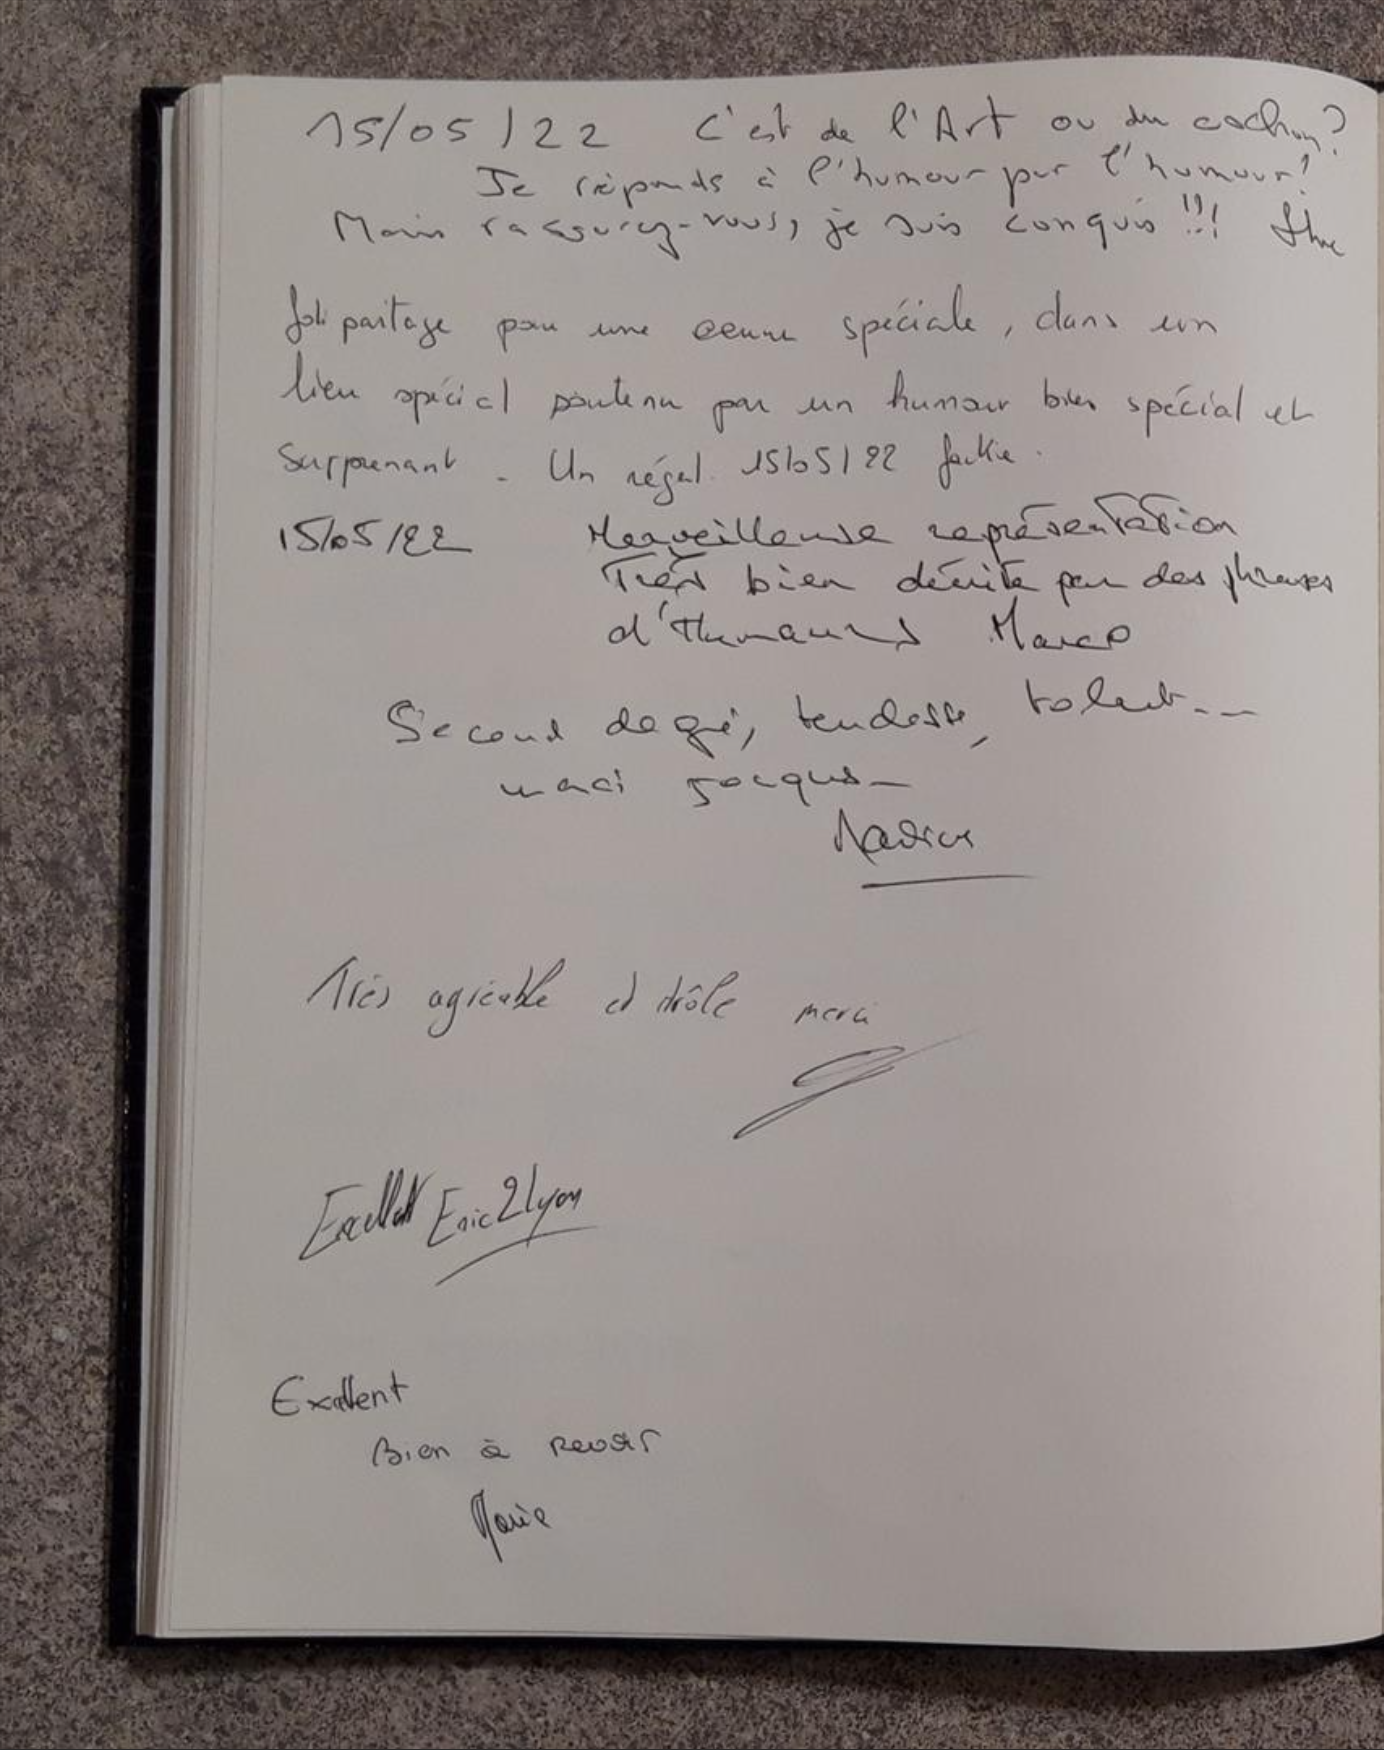 15/05/22 C'est de l'Art ou du cochon?
Je réponds à l'humour par l'humour!
Mais rassurez-vous, je suis conquis !!!
Joli partage pour une œuvre spéciale, dans un
lieu spécial soutenu par un humour bien spécial et
surprenant - Un régal. 15/05/22 Jackie.
15/05/22 Merveilleuse représentation
Très bien décrite par des phrases
d'Humours Marco
Second degré, tendresse, talent...
merci Jacques -
Nadine
Très agréable et drôle merci
Excellent Eric2Lyon
Excellent
Bien à revoir
Marie